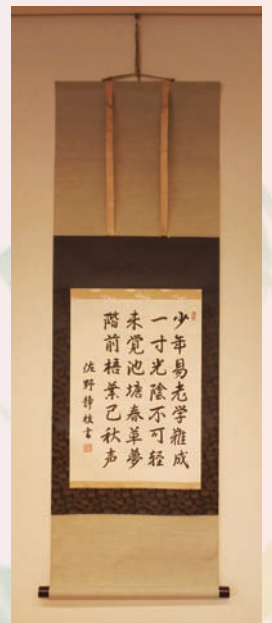 少年易老学難成
一寸光陰不可軽
未覚池塘春草夢
階前梧葉已秋声
佐野静枝書